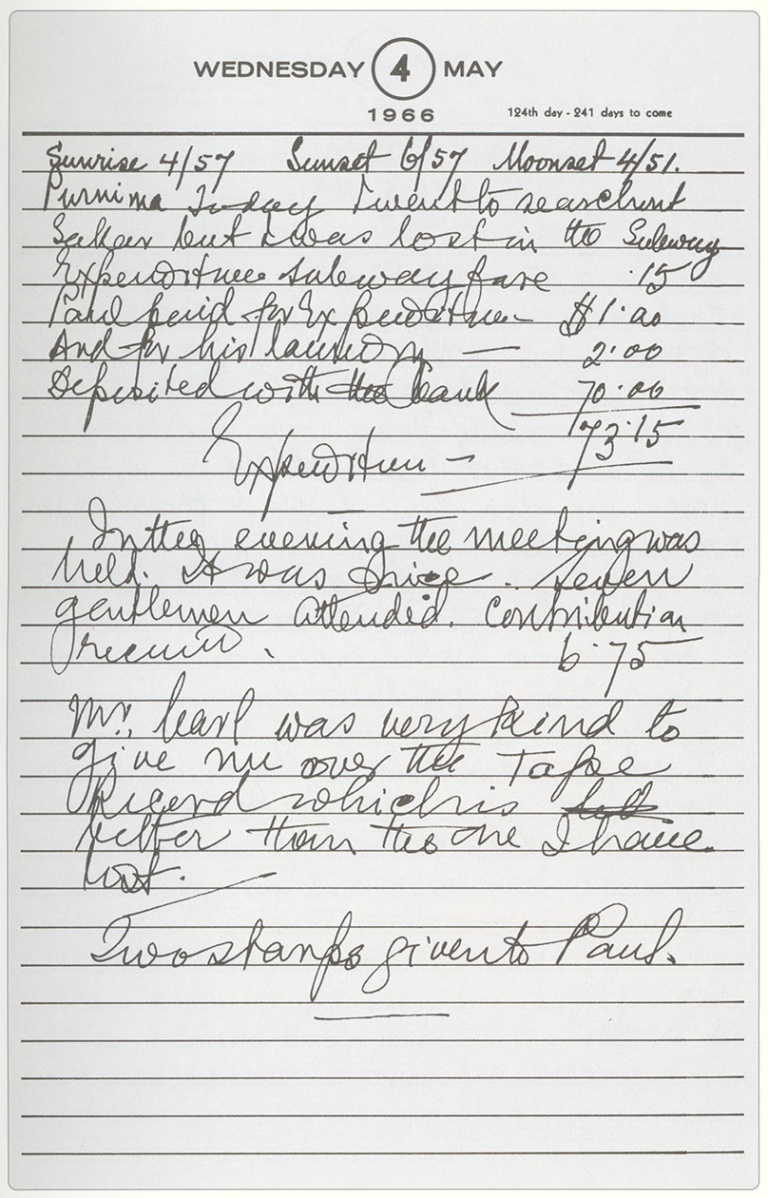 WEDNESDAY 4 MAY
1966 124th day - 241 days to come
Sunrise 4/57 Sunset 6/57 Moonset 4/51.
Purnima Today I went to search out
but I was lost in the Subway
Expenditure subway fare .15
Paul paid for Expenditure - $1.00
And for his laundry — 2.00
Deposited with the bank 70.00
73.15
Expenditure —
In the evening the meeting was
held. It was nice. Seven
gentlemen attended. Contribution
6.75
Mr. Carl was very kind to
give me over the Tape
Record which is
better than the one I have
lost.
Two stamps given to Paul.